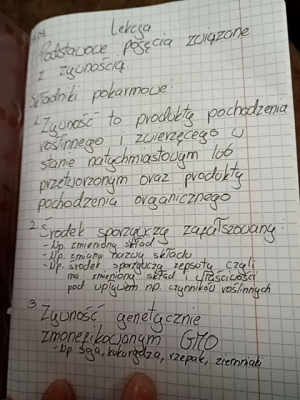 Lekcja
Podstawowe pojęcia związane
z żywnością.
Składniki pokarmowe:
1. Żywność to produkty pochodzenia
roślinnego i zwierzęcego w
stanie natychmiastowym lub
przetworzonym oraz produkty
pochodzenia organicznego
2. Środek spożywczy zafałszowany:
- Np. zmieniony skład
- Np. zmiana nazwy składu
- Np. środek spożywczy zepsuty czyli
ma zmieniony skład i właściwości
pod wpływem np. czynników roślinnych
3. Żywność genetycznie
zmonefikowanym GMO
- Np. Soja, kukurydza, rzepak, ziemniaki